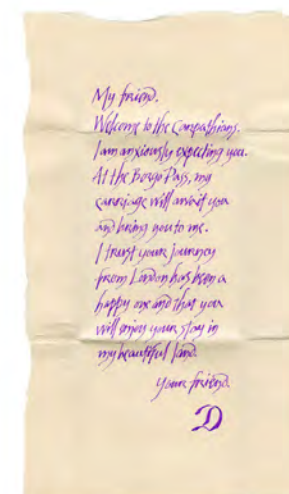 My friend.
Welcome to the Carpathians.
I am anxiously expecting you.
At the Borgo Pass, my
carriage will await you
and bring you to me.
I trust your journey
from London has been a
happy one and that you
will enjoy your stay in
my beautiful land.
Your friend
D